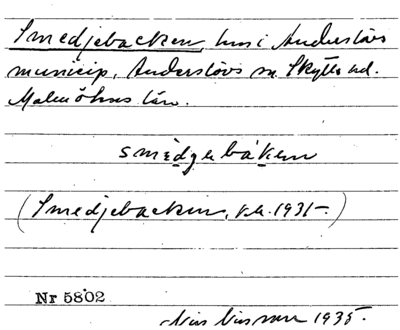 Smedjebacken, hus i Anderslövs
municip, Anderslövs sn. Skytts hd.
Malmöhus län.
smèdgebákenn
(Smedjebacken, t.k. 1931-.)
Nr 5802
Nils Nilsson 1935.